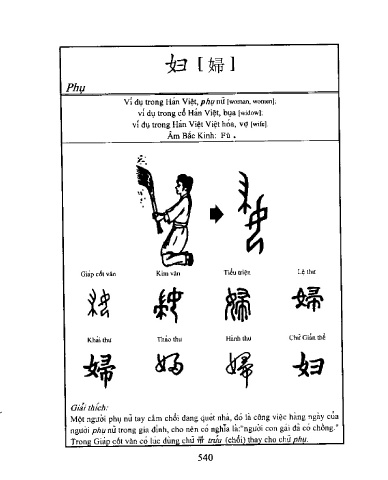 妇 [ 婦 ]
Phụ
Ví dụ trong Hán Việt, phụ nữ [woman, women];
ví dụ trong cổ Hán Việt, bụa [widow];
ví dụ trong Hán Việt Việt hóa, vợ [wife].
Âm Bắc Kinh: Fù .
Giáp cốt văn Kim văn Tiểu triện Lệ thư
婦 婦
Khải thư Thảo thư Hành thư Chữ Giản thể
婦 婦 妇
Giải thích:
Một người phụ nữ tay cầm chổi đang quét nhà, đó là công việc hàng ngày của
người phụ nữ trong gia đình, cho nên có nghĩa là:"người con gái đã có chồng."
Trong Giáp cốt văn có lúc dùng chữ 帚 trửu (chổi) thay cho chữ phụ.
540